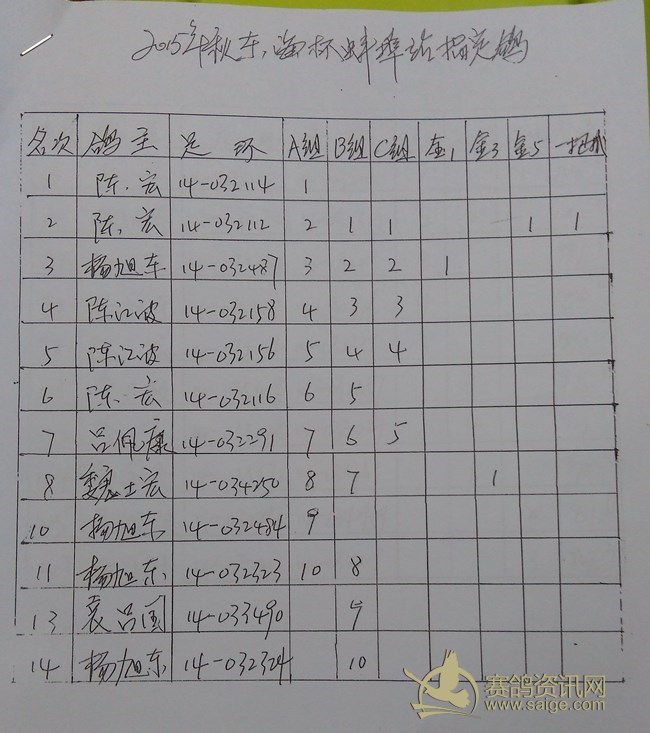 2015年秋东海杯蚌埠站指定鸽
名次 鸽主 足环 A组 B组 C组 金1 金3 金5
1 陈宏 14-032114 1
2 陈宏 14-032112 2 1 1 1 1
3 杨旭东 14-032487 3 2 2 1
4 陈江波 14-032158 4 3 3
5 陈江波 14-032156 5 4 4
6 陈宏 14-032116 6 5
7 吕佩康 14-032291 7 6 5
8 魏士宏 14-034250 8 7 1
10 杨旭东 14-032484 9
11 杨旭东 14-032323 10 8
13 袁吕国 14-033490 9
14 杨旭东 14-032324 10
赛鸽资讯网
www.saige.com